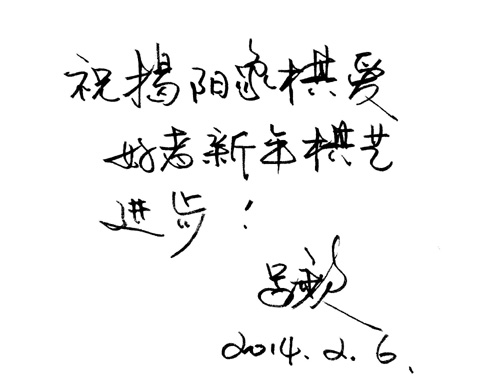 祝揭阳象棋爱
好者新年棋艺
进步！
吕钦
2014.2.6.